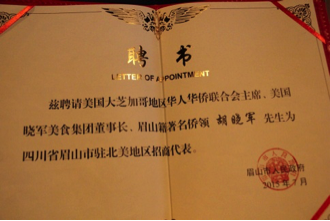 聘书
LETTER OF APPOINTMENT
兹聘请美国大芝加哥地区华人华侨联合会主席、美国
晓军美食集团董事长、眉山籍著名侨领 胡晓军 先生为
四川省眉山市驻北美地区招商代表。
眉山市人民政府